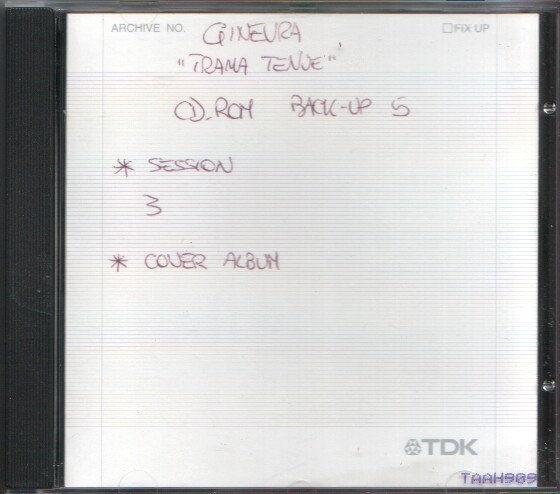 ARCHIVE NO. GINEVRA ☐FiX UP
"TRAMA TENUE"
CD-ROM BACK-UP 5
* SESSION
3
* COVER ALBUM
TDK
TAAH909